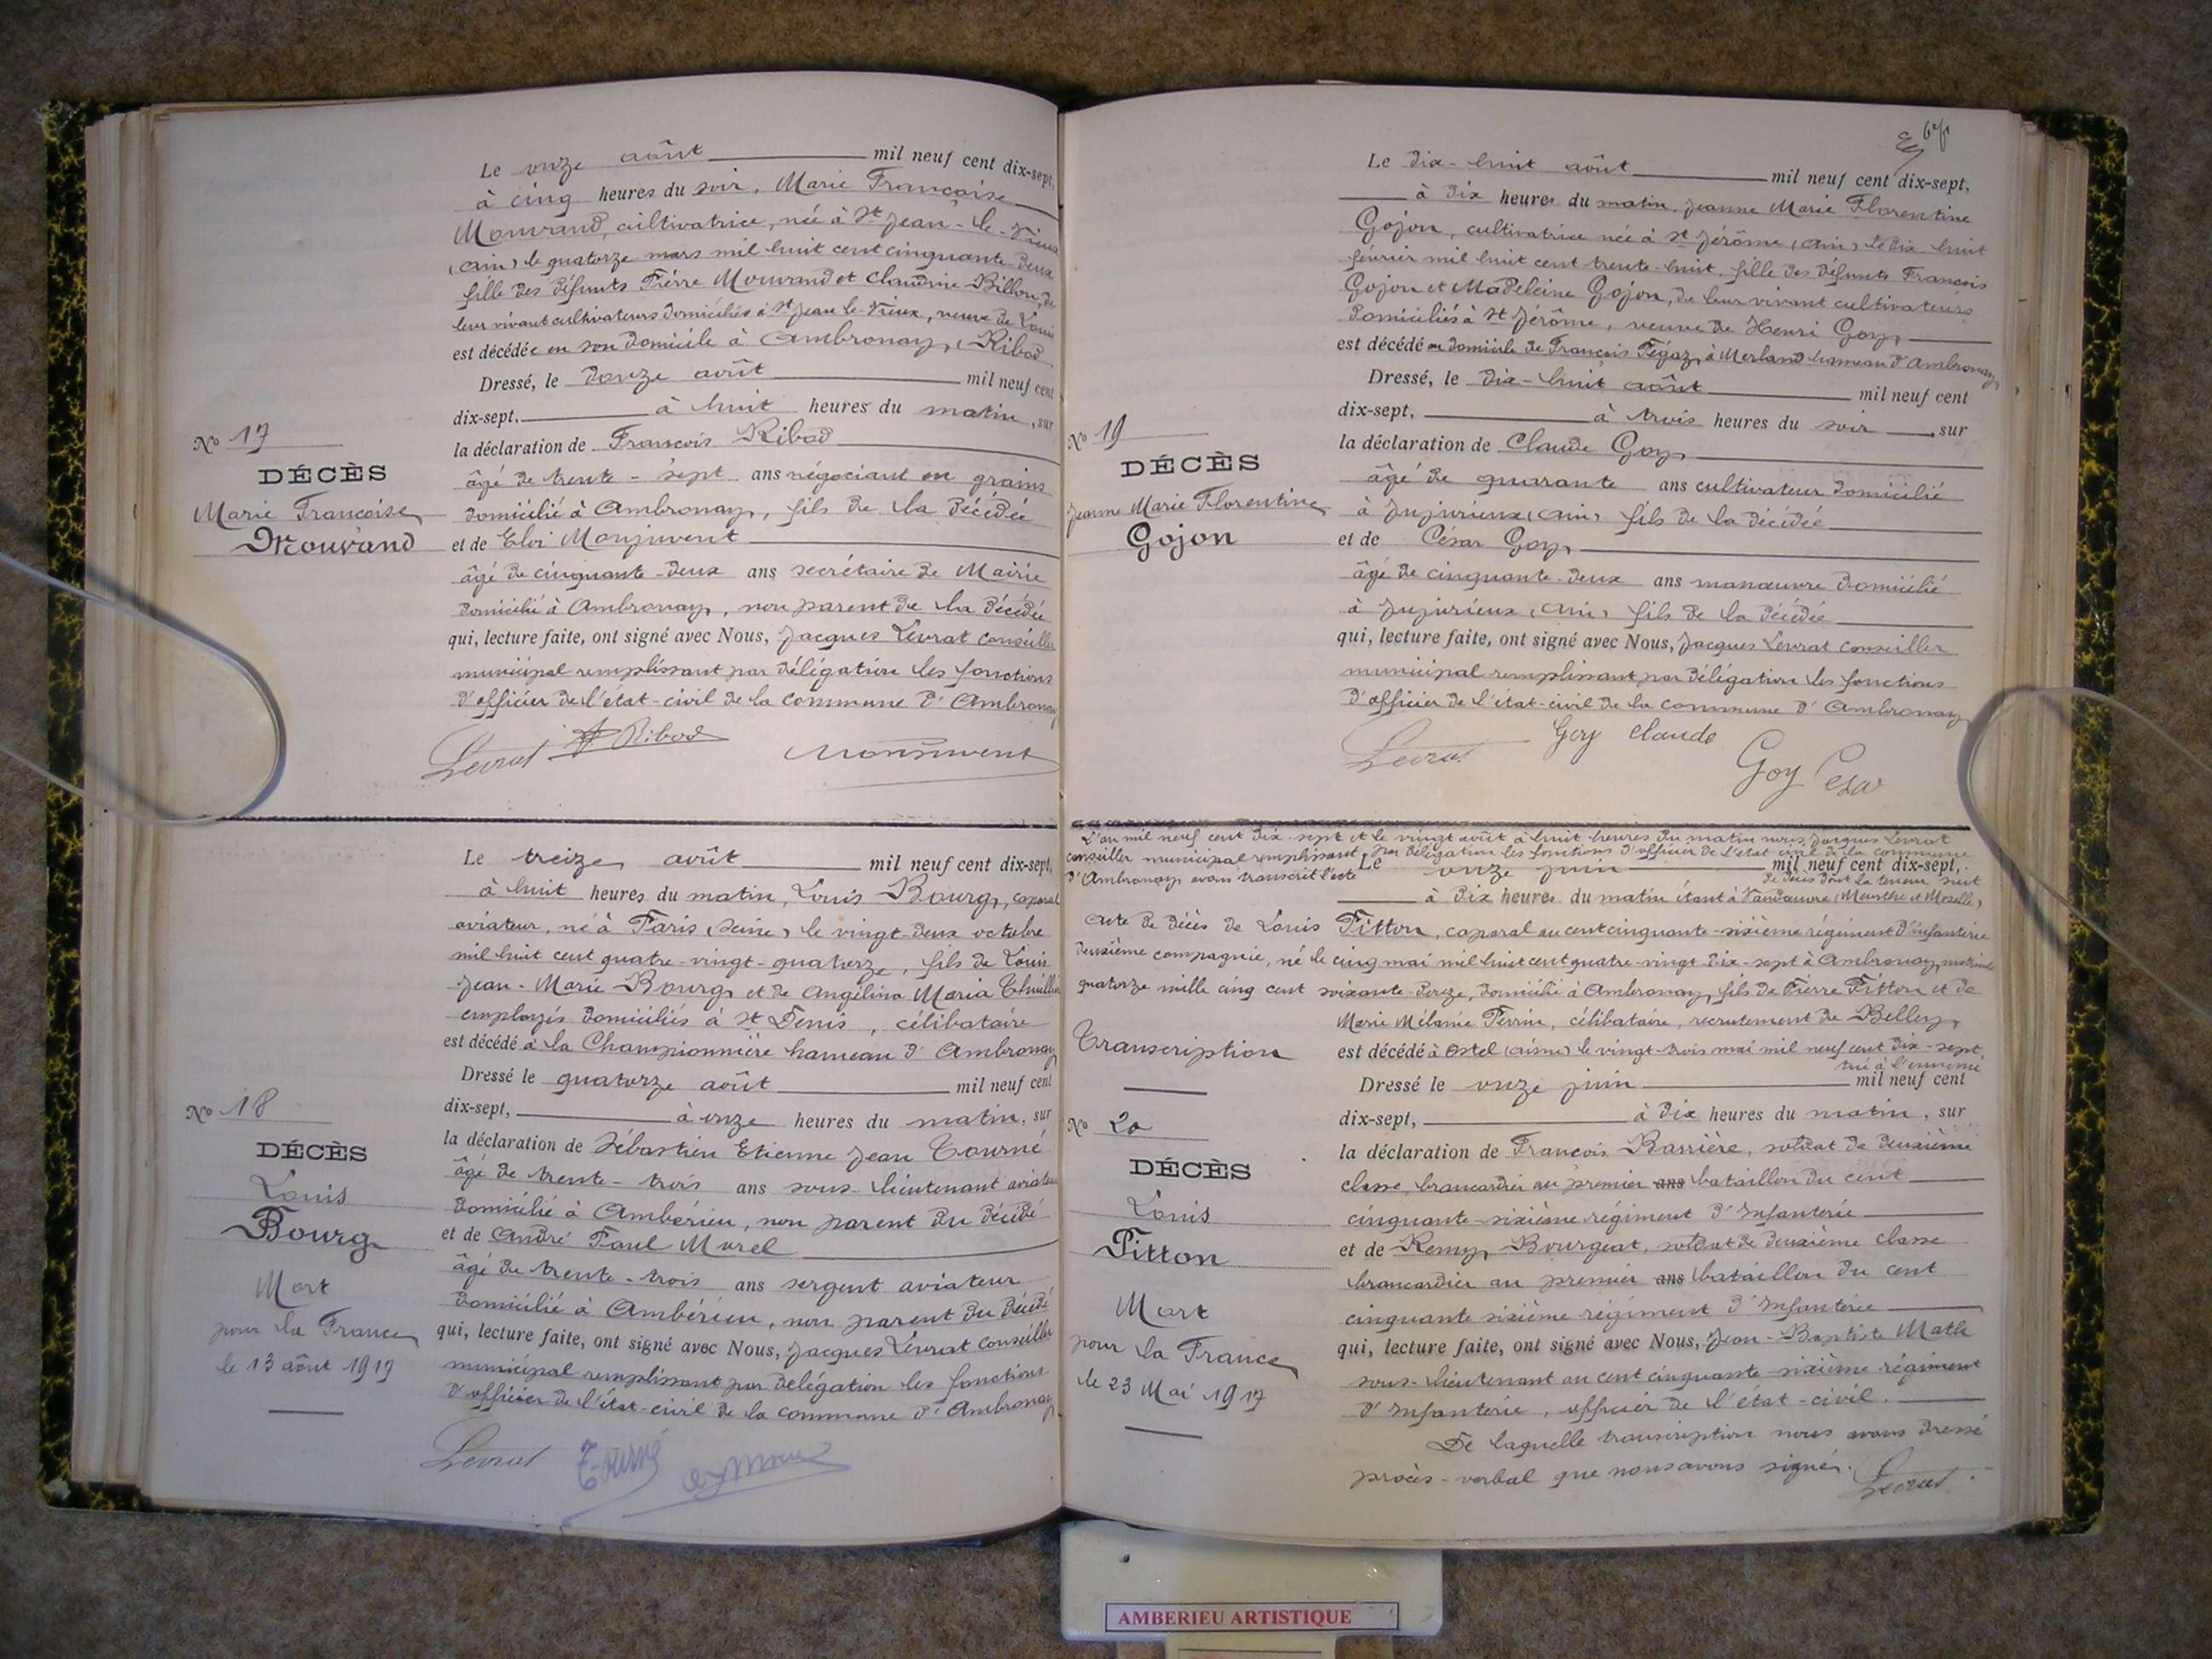 Le onze août mil neuf cent dix-sept,
à cinq heures du soir, Marie Françoise
Mouvand, cultivatrice, née à St Jean-le-Vieux
(Ain) le quatorze mars mil huit cent cinquante-deux
fille des défunts Pierre Mouvand et Claudine Billon, de
leur vivant cultivateurs domiciliés à St Jean le-Vieux, veuve de Louis
est décédée en son domicile à Ambronay, Ribod
Dressé, le douze août mil neuf cent
dix-sept, à huit heures du matin, sur
la déclaration de François Ribod
âgé de trente-sept ans négociant en grains
domicilié à Ambronay, fils de la décédée
et de Eloi Monjuvent
âgé de cinquante-deux ans secrétaire de Mairie
domicilié à Ambronay, non parent de la décédée
qui, lecture faite, ont signé avec Nous, Jacques Levrat conseiller
municipal remplissant par délégation les fonctions
d'officier de l'état-civil de la commune d'Ambronay
Levrat Ribod Monjuvent
No 17
DÉCÈS
Marie Françoise
Mouvand
Le treize août mil neuf cent dix-sept,
à huit heures du matin, Louis Bourg, caporal
aviateur, né à Paris (Seine) le vingt-deux octobre
mil huit cent quatre-vingt-quatorze, fils de Louis
Jean-Marie Bourg et de Angélina Maria Thuillier
employés domiciliés à St Denis, célibataire
est décédé à la Championnière hameau d'Ambronay
Dressé le quatorze août mil neuf cent
dix-sept, à onze heures du matin, sur
la déclaration de Sébastien Etienne Jean Tourné
âgé de trente-trois ans sous-lieutenant aviateur
domicilié à Ambérieu, non parent du décédé
et de André Paul Morel
âgé de trente-trois ans sergent aviateur
domicilié à Ambérieu, non parent du décédé
qui, lecture faite, ont signé avec Nous, Jacques Levrat conseiller
municipal remplissant par délégation les fonctions
d'officier de l'état-civil de la commune d'Ambronay
Levrat Tourné
No 18
DÉCÈS
Louis
Bourg
Mort
pour la France
le 13 août 1917
Le dix-huit août mil neuf cent dix-sept,
à dix heures du matin, Jeanne Marie Florentine
Gojon, cultivatrice née à St Jérôme (Ain) le dix-huit
février mil huit cent trente-huit, fille des défunts François
Gojon et Madeleine Gojon, de leur vivant cultivateurs
domiciliés à St Jérôme, veuve de Henri Goy,
est décédé au domicile de François Pégaz, à Merland hameau d'Ambronay
Dressé, le dix-huit août mil neuf cent
dix-sept, à trois heures du soir, sur
la déclaration de Claude Goy,
âgé de quarante ans cultivateur domicilié
à Jujurieux (Ain) fils de la décédée
et de César Goy,
âgé de cinquante-deux ans manœuvre domicilié
à Jujurieux (Ain) fils de la décédée
qui, lecture faite, ont signé avec Nous, Jacques Levrat conseiller
municipal remplissant par délégation les fonctions
d'officier de l'état-civil de la commune d'Ambronay
Levrat Goy Claude Goy Cesar
No 19
DÉCÈS
Jeanne Marie Florentine
Gojon
L'an mil neuf cent dix-sept et le vingt août à huit heures du matin nous, Jacques Levrat
conseiller municipal remplissant par délégation les fonctions d'officier de l'état civil de la commune
d'Ambronay, avons transcrit l'acte
de décès dont la teneur suit
Le onze juin mil neuf cent dix-sept,
à dix heures du matin étant à Vandœuvre (Meurthe et Moselle)
acte de décès de Louis Pitton, caporal au cent cinquante-sixième régiment d'infanterie
deuxième compagnie, né le cinq mai mil huit cent quatre-vingt dix-sept à Ambronay, matricule
quatorze mille cinq cent soixante-douze, domicilié à Ambronay, fils de Pierre Pitton et de
Marie Mélanie Perrin, célibataire, recrutement de Belley,
est décédé à Ostel (Aisne) le vingt-trois mai mil neuf cent dix-sept
tué à l'ennemi
Dressé le onze juin mil neuf cent
dix-sept, à dix heures du matin, sur
la déclaration de François Barrière, soldat de deuxième
classe, brancardier au premier ans bataillon du cent
cinquante-sixième régiment d'Infanterie
et de Remy Bourgeat, soldat de deuxième classe
brancardier au premier ans bataillon du cent
cinquante sixième régiment d'Infanterie
qui, lecture faite, ont signé avec Nous, Jean-Baptiste Math
sous-lieutenant au cent cinquante-sixième régiment
d'Infanterie, officier de l'état-civil.
De laquelle transcription nous avons dressé
procès-verbal que nous avons signé.
Levrat
Transcription
No 20
DÉCÈS
Louis
Pitton
Mort
pour la France
le 23 Mai 1917
AMBERIEU ARTISTIQUE